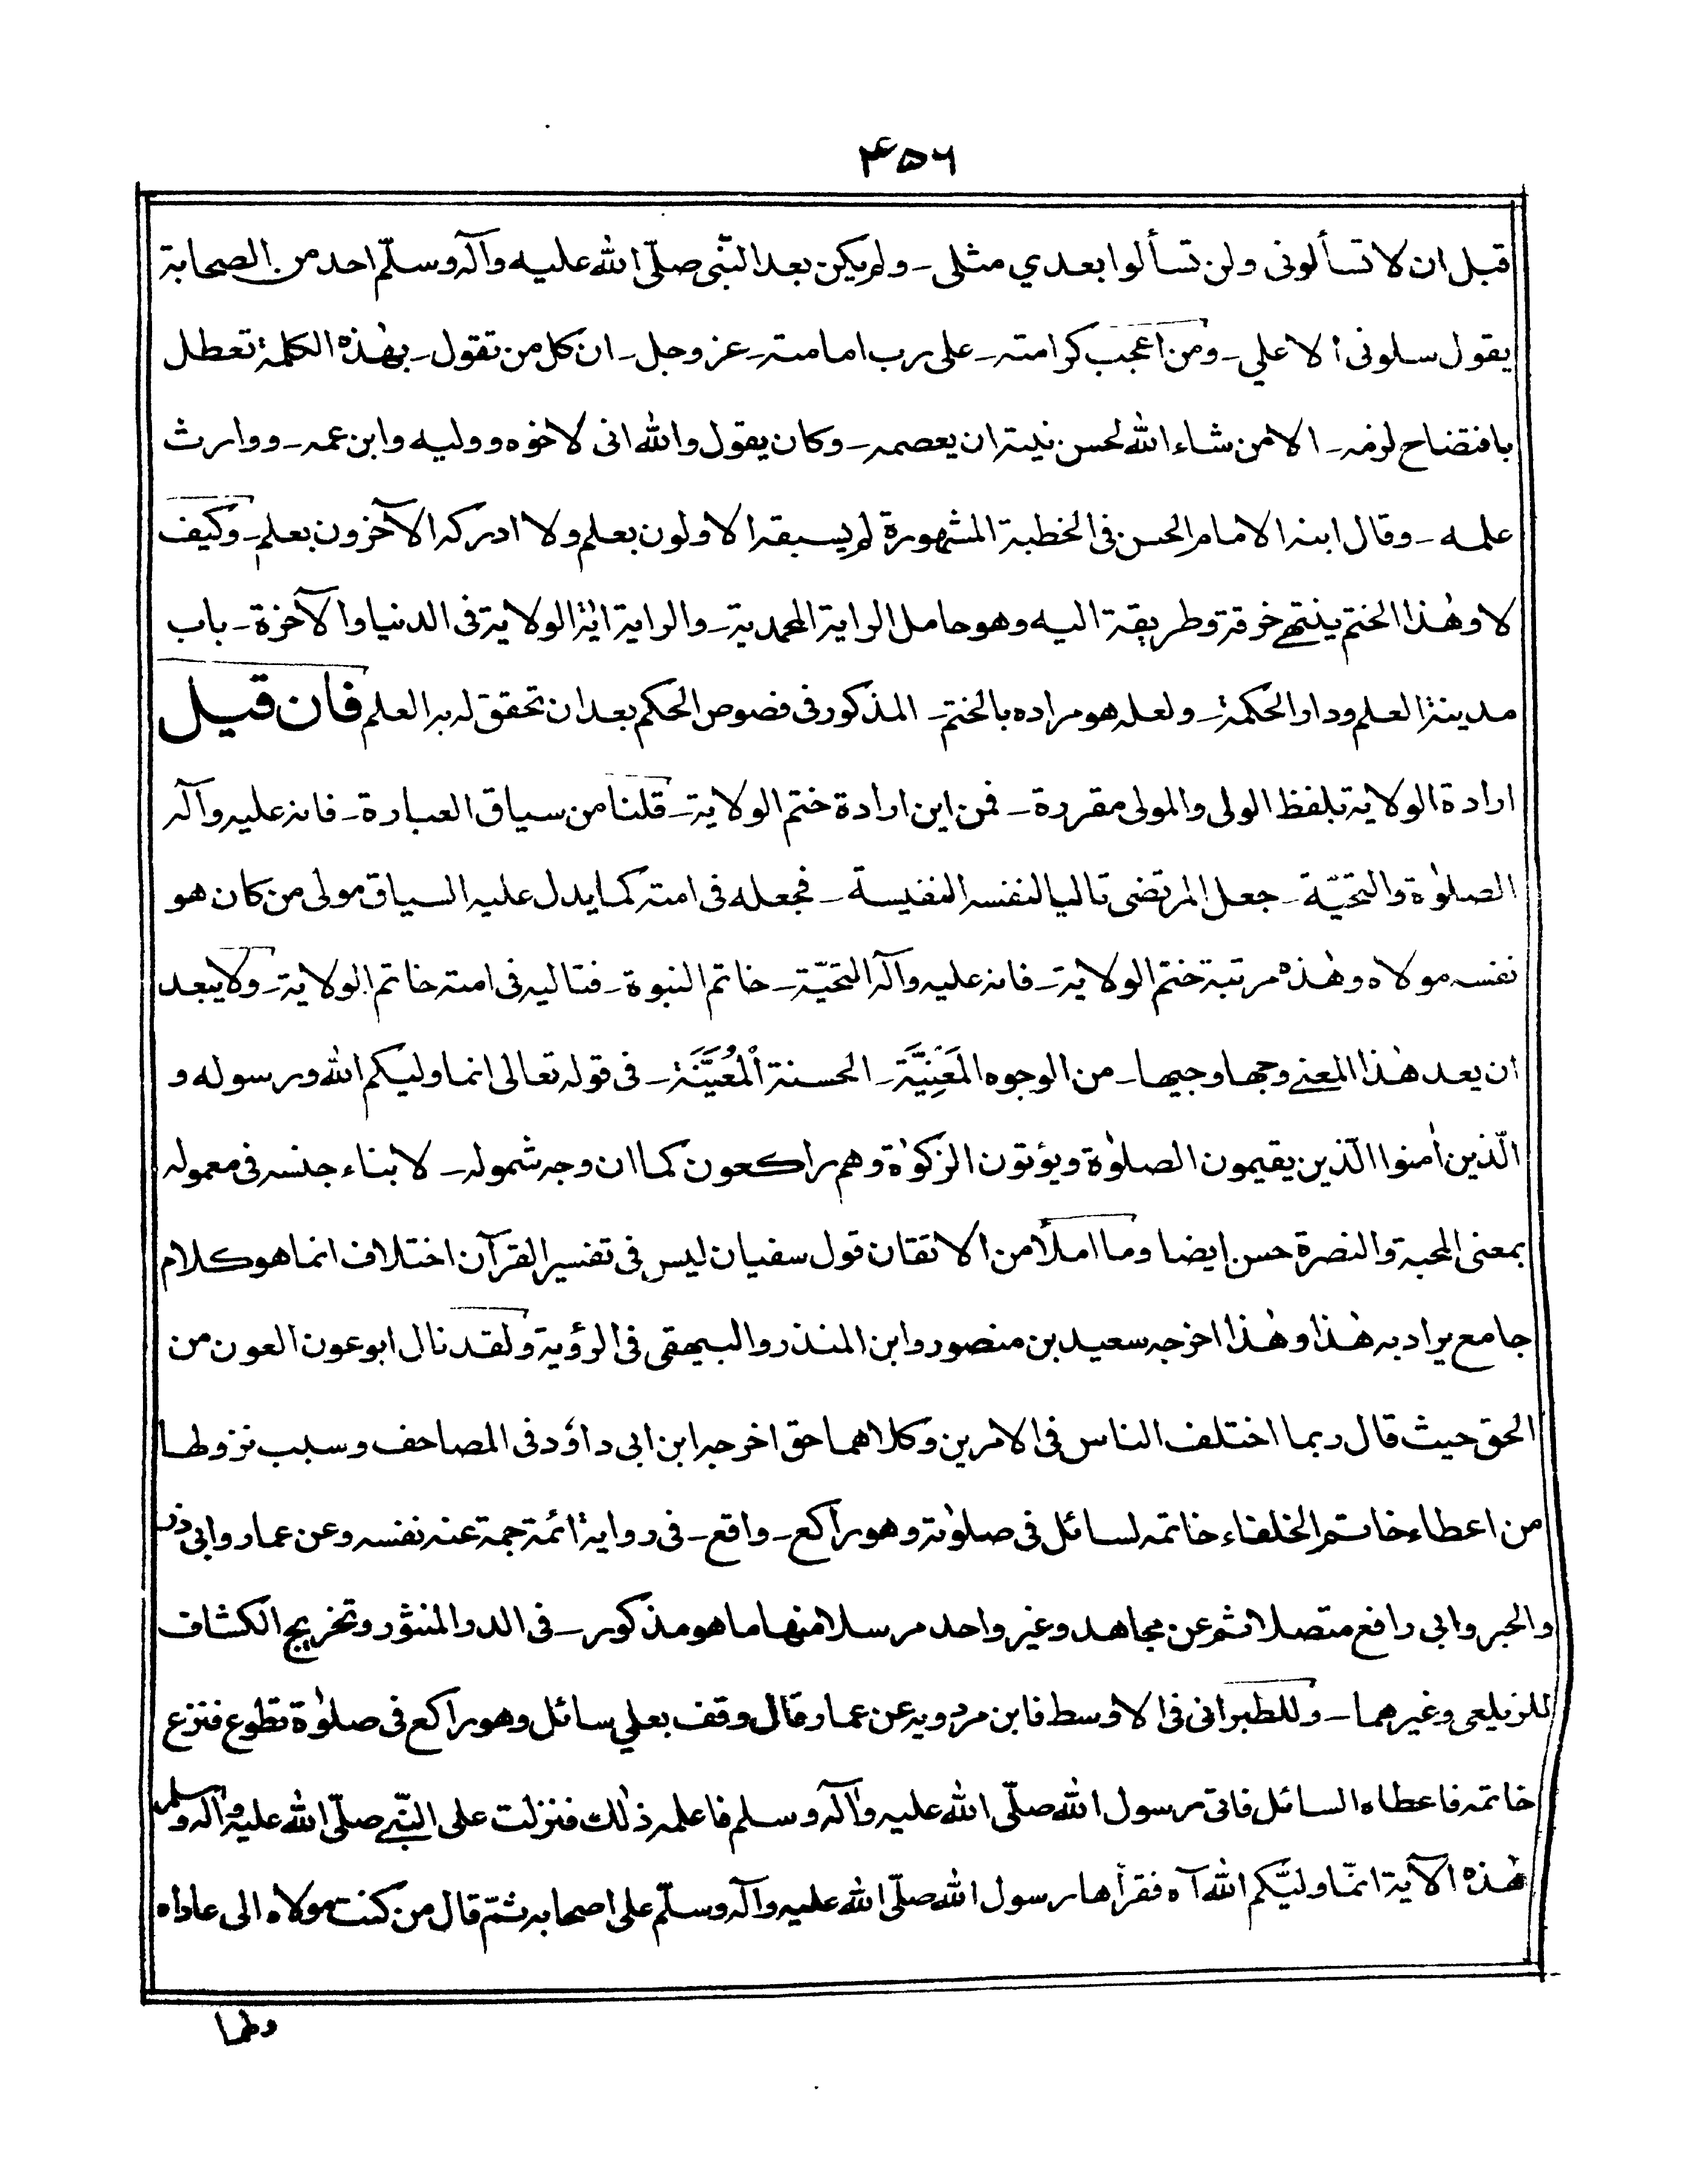 ۴۵۶
قبل ان لا تسألونی ولن تسألوا بعدي مثلی ۔ ولم یکن بعد النّبی صلّی الله علیه وآله وسلّم احد من الصحابة
یقول سلونی الا علي ۔ ومن اعجب کرامته ۔ علی رب امامته ۔ عز وجل ۔ ان کل من تقول ۔ بهٰذه الکلمة تعطل
بافتضاح لزمه ۔ الا من شاء الله لحسن نیته ان یعصمه ۔ وکان یقول والله انی لاخوه وولیه وابن عمه ۔ ووارث
علمه ۔ وقال ابنه الامام الحسن فی الخطبة المشهورة لم یسبقه الاولون بعلم ولا ادرکه الآخرون بعلم ۔ وکیف
لا وهٰذا الختم ینتهے خرقة وطریقة الیه وهو حامل الرایة المحمدیة ۔ والرایة ایة الولایة فی الدنیا والآخرة ۔ باب
مدینة العلم ودار الحکمة ۔ ولعله هو مراده بالختم ۔ المذکور فی فصوص الحکم بعد ان تحقق له به العلم فان قیل
ارادة الولایة بلفظ الولی والمولی مقررة ۔ فمن این ارادة ختم الولایة ۔ قلنا من سیاق العبارة ۔ فانه علیه وآله
الصلوٰة والتحیّة ۔ جعل المرتضی تالیا لنفسه النفیسة ۔ فجعله فی امته کما یدل علیه السیاق مولی من کان هو
نفسه مولاه وهٰذه مرتبة ختم الولایة ۔ فانه علیه وآله التحیّة ۔ خاتم النبوة ۔ فتالیه فی امته خاتم الولایة ۔ ولا یبعد
ان یعد هٰذا المعنے وجها وجیها ۔ من الوجوه المَعْنِیَّة ۔ الحسنة الْمُعَیَّنَة ۔ فی قوله تعالی انما ولیکم الله ورسوله و
الّذین اٰمنوا الّذین یقیمون الصلوٰة ویؤتون الزکوٰة وهم راکعون کما ان وجه شموله ۔ لابناء جنسه فی معموله
بمعنی المحبة والنصرة حسن ایضا وما املأ من الاتقان قول سفیان لیس فی تفسیر القرآن اختلاف انما هو کلام
جامع یراد به هٰذا وهٰذا اخرجه سعید بن منصور وابن المنذر والبیهقی فی الرؤیة ولقد نال ابو عون العون من
الحق حیث قال ربما اختلف الناس فی الامرین وکلاهما حق اخرجه ابن ابی داوٗد فی المصاحف وسبب نزولها
من اعطاء خاتم الخلفاء خاتمه لسائل فی صلوٰته وهو راکع ۔ واقع ۔ فی روایة ائمة جمة عنه نفسه وعن عمار وابی ذر
والحبر وابی رافع متصلا ثم عن مجاهد وغیر واحد مرسلا منها ما هو مذکور ۔ فی الدر المنثور وتخریج الکشاف
للزیلعی وغیرهما ۔ وللطبرانی فی الاوسط فابن مردویه عن عمار قال وقف بعلي سائل وهو راکع فی صلوٰة تطوع فنزع
خاتمه فاعطاه السائل فاتی رسول الله صلّی الله علیه واٰله وسلم فاعلمه ذٰلك فنزلت علی النّبے صلّی الله علیه واٰله وسلم
هٰذه الآیة انمّا ولیّکم الله آه فقرأها رسول الله صلّی الله علیه وآله وسلّم علی اصحابه ثمّ قال من کنت مولاه الی عاداه
ولهما